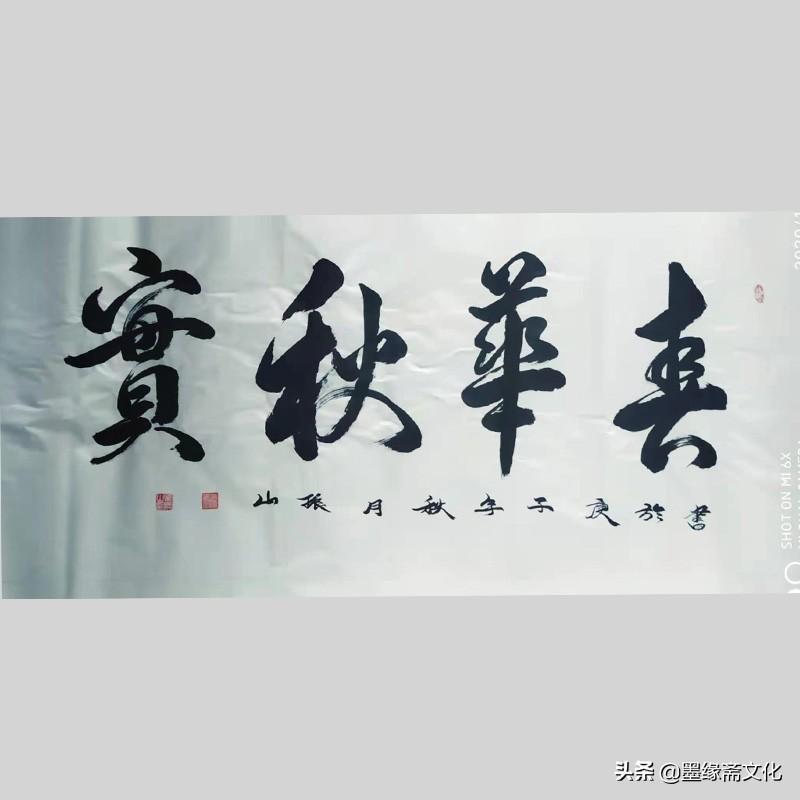 春華秋實
書於庚子年秋月振山
SHOT ON MI 6X
头条 @墨缘斋文化